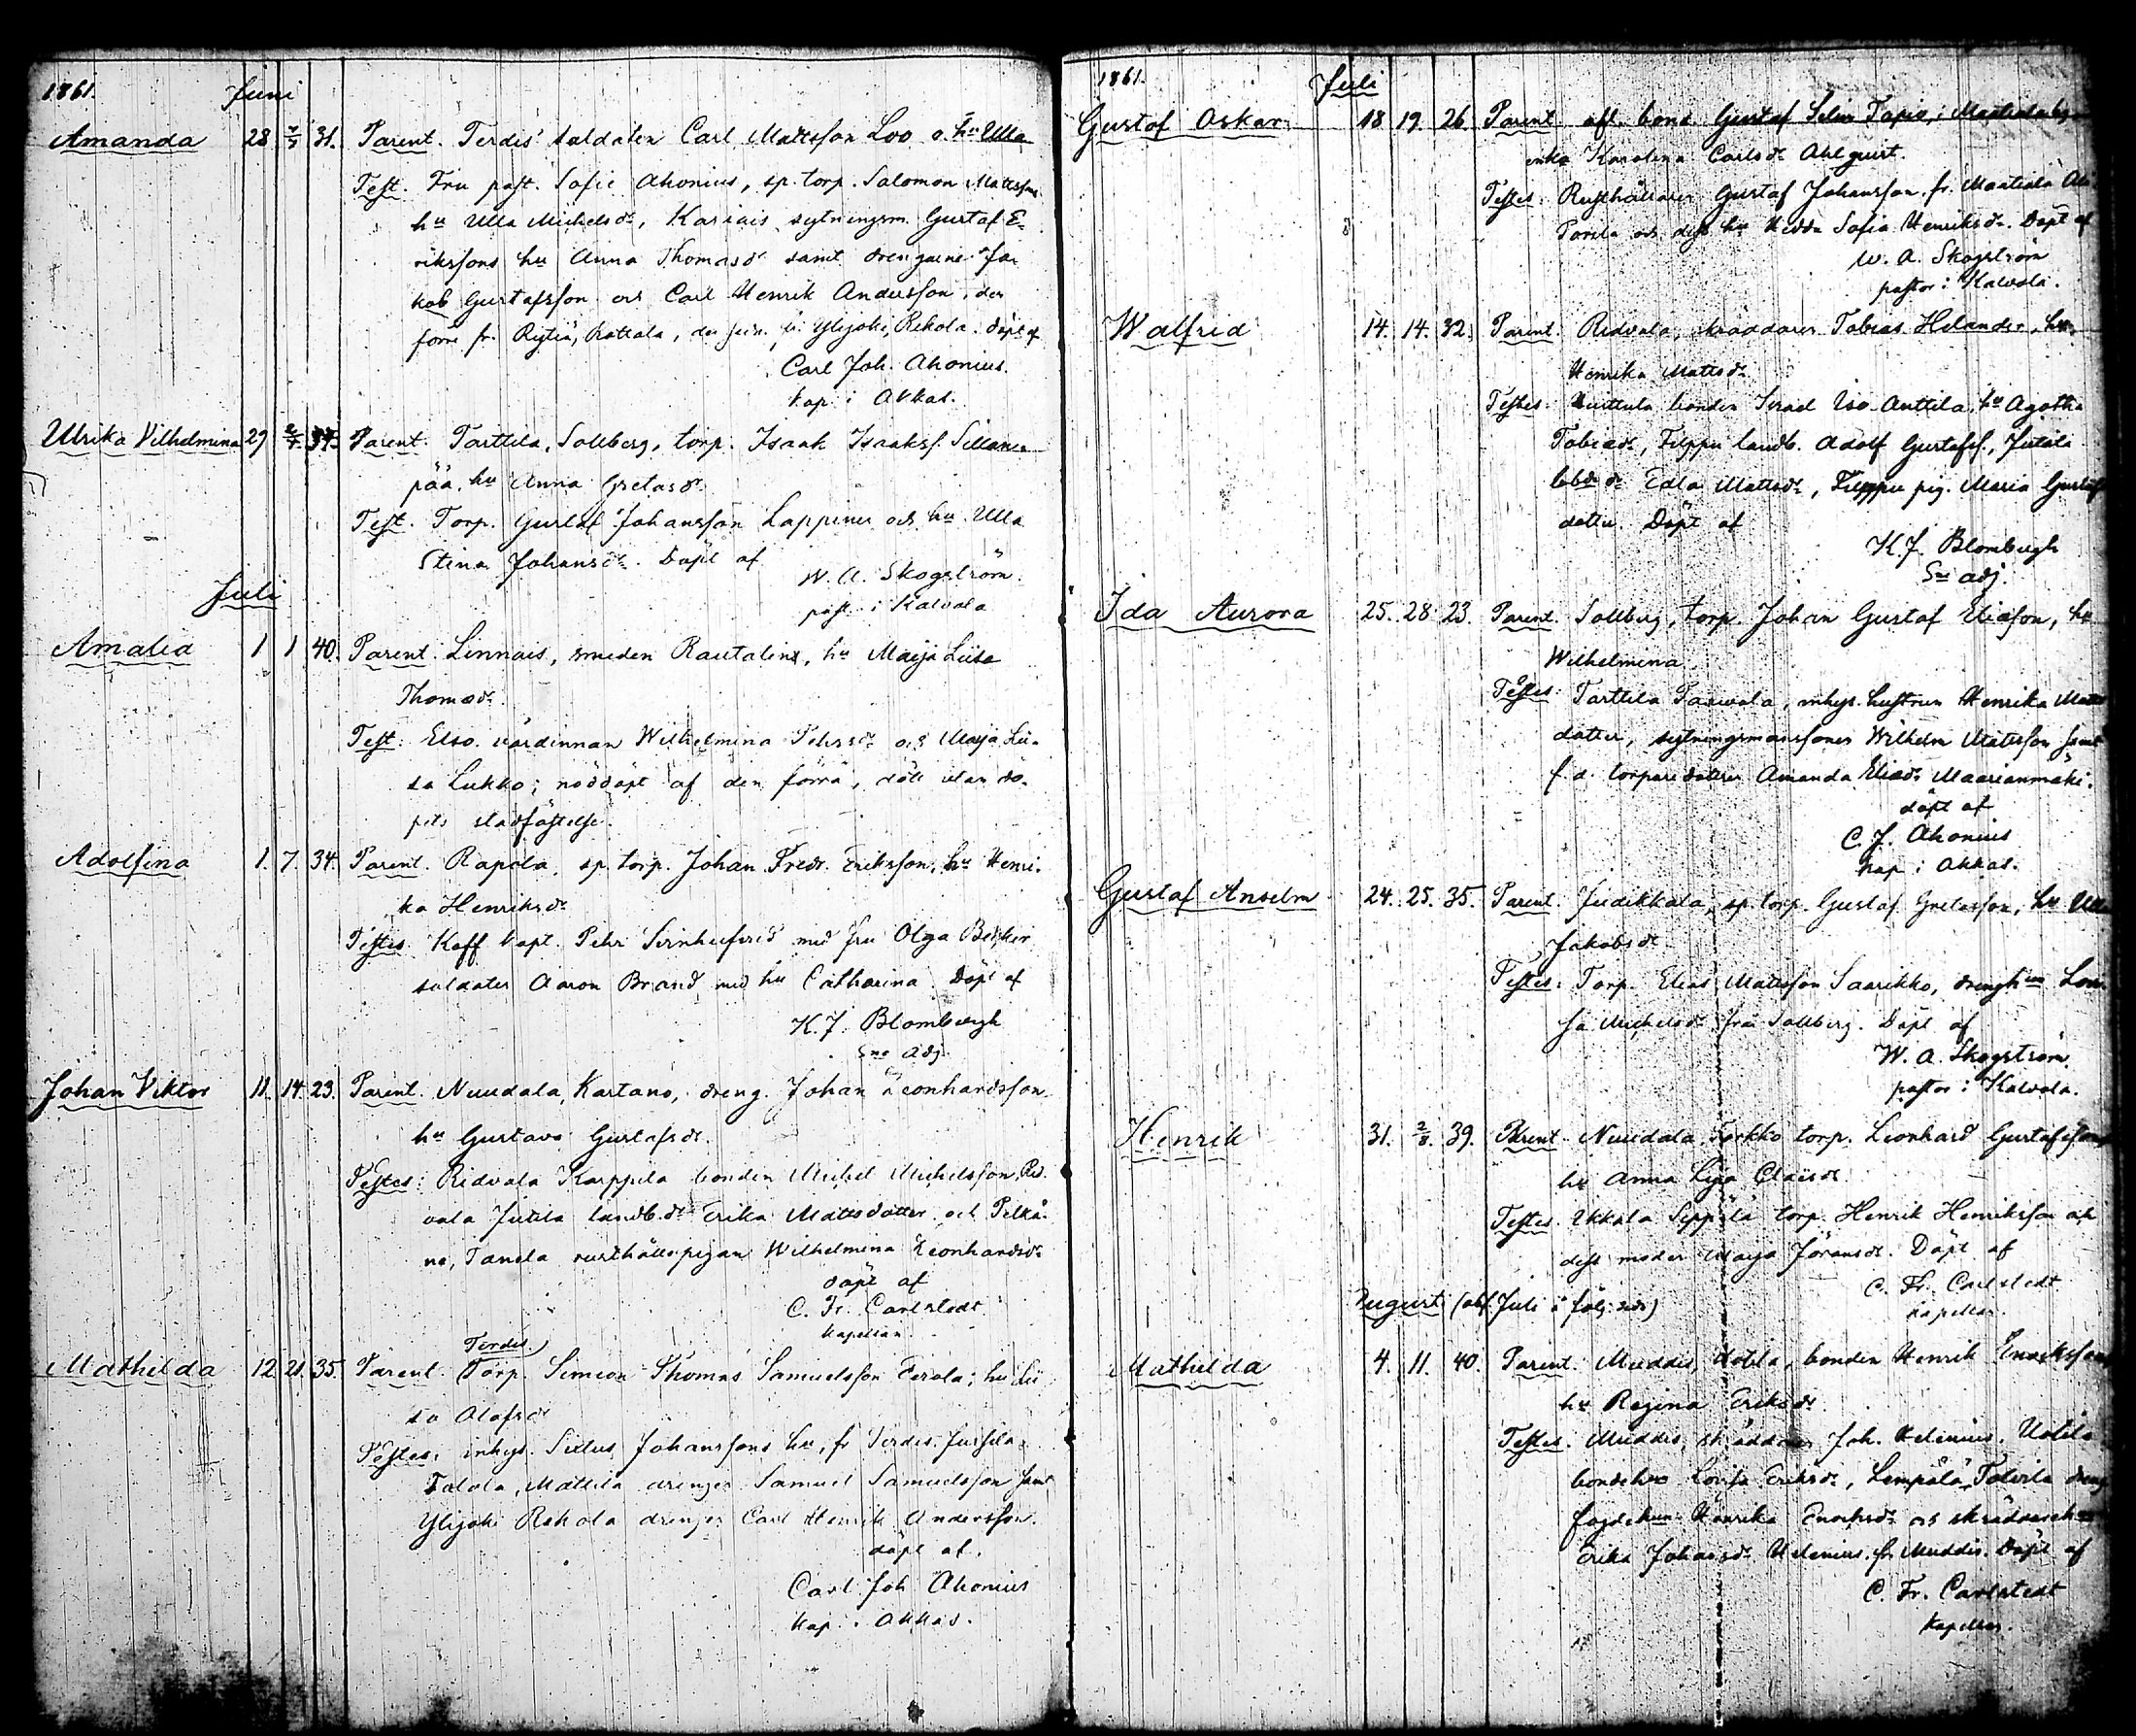 1861. Juni
Amanda 28 2/7 31. Parent. Terdis soldaten Carl Mattsson Loo o. hu Ulla
Test. Fru past. Sofie Ahonius, sp. torp. Salomon Mattssons
hu Ulla Michelsdr, Kariais sytningsm. Gustaf E-
rikssons hu Anna Thomasdr samt drengarne Ja-
kob Gustafsson och Carl Henrik Andersson, den
förre fr. Rytiä, Rattala, den sen. fr. Ylijoki, Rekola. döpt af
Carl Joh. Ahonius.
kap. i Akkas.
Ulrika Vilhelmina 29 37. Parent. Tarttila, Sollberg, torp. Isaak Isaaksf. Sillan-
pää, hu Anna Gretasdr.
Test. Torp. Gustaf Johansson Lappinen och hu Ulla
Stina Johansdr. Döpt af
W. A. Skogström.
past. i Kalvola
Juli
Amalia 1 1 40. Parent. Linnais, smeden Rautalin, hu Maija Liisa
Thomasdr.
Test: Elso värdinnan Wilhelmina Pehrsdr och Maija Lii-
sa Lukko; nöddöpt af den förra, död utan do-
pets stadfästelse.
Adolfina 1. 7. 34. Parent. Rapola, sp. torp. Johan Fredr. Eriksson, hu Henri-
ka Henriksdr
Testes Koff. kapt. Pehr Svinhufvud med fru Olga Becker
soldaten Aaron Brand med hu Catharina. Döpt af
K. J. Blombergh
Sne adj.
Johan Viktor 11. 14. 23. Parent. Nuudala, Kartano, dreng. Johan Leonhardsson
hu Gustava Gustafsdr.
Testes: Ridvala Karppila bonden Michel Michelsson, Rid-
vala Jutila landb. dr Erika Mattsdotter och Pelkä-
ne, Tanela rusthålls pigan Wilhelmina Leonhardsdr
döpt af
C. Fr. Carlstedt
kapellan.
Mathilda 12. 21. 35. Parent. Terdis Torp. Simeon Thomas Samuelsson Eerola; hu Lii-
sa Olofsdr
Testes: inhys. Sixtus Johanssons hu, fr Terdis. Jussila,
Talola, Mattila drengen Samuel Samuelsson samt
Ylijoki Rekola drengen Carl Henrik Andersson.
döpt af.
Carl Joh Ahonius
kap. i Akkas.
1861. Juli
Gustaf Oskar 18. 19. 26. Parent afl. bond. Gustaf Selin Tapio, i Maatiala by
enka Karolina Carlsdr Ahlqvist.
Testes: Rusthållaren Gustaf Johansson fr. Maatiala
Porila och dess hu Hedda Sofia Henriksdr. Döpt af
W. A. Skogström
pastor i Kalvola.
Walfrid 14. 14. 32. Parent. Ridvala, skräddaren Tobias Helander, hu
Henrika Mattsdr
Testes: bonden Israel Iso Anttila, hu Agatha
Tobiasdr, Filppu landb. Adolf Gustafsf., Jutila
dr Edla Mattsdr, Filppu pig. Maria Gustaf
dotter. Döpt af
K. J. Blombergh
Sne adj.
Ida Aurora 25. 28. 23. Parent. Sollberg, torp. Johan Gustaf Eliasson, hu
Wilhelmina
Testes: Tarttila Paavola, inhys. hustrun Henrika Matts
dotter, sytningsmanssonen Wilhelm Mattsson samt
f. d. torpare dottren Amanda Eliasdr Maarianmäki.
döpt af
C. J. Ahonius
kap i Akkas.
Gustaf Anselm 24. 25. 35. Parent. Judikkala, sp. torp. Gustaf Gretasson, hu Ulla
Jakobsdr.
Testes: Torp. Elias Mattsson Saarikko, drengh. Lovi-
sa Michelsdr från Sollberg. Döpt af
W. A. Skogström
pastor i Kalvola.
Henrik 31. 2/8. 39. Parent. Nuudala, torp. Leonhard Gustafsson
hu Anna Lisa Claësdr.
Testes. Ukkola Seppälä torp. Henrik Henriksson och
dess moder Maija Göransdr. Döpt af
C. Fr. Carlstedt
kapellan.
Augusti (obs. Juli å följ. sida)
Mathilda 4. 11. 40. Parent. Muddis, Uotila, bonden Henrik Enocksson
hu Regina Eriksdr
Testes. Muddis, skräddaren Joh. Helenius, Uotila
bondehu Lovisa Eriksdr, Lempälä, Tolvila dreng
fogdehun Henrika Enochsdr och skräddareh
Erika Johansdr Helenius fr Muddis. Döpt af
C. Fr. Carlstedt
kapellan.